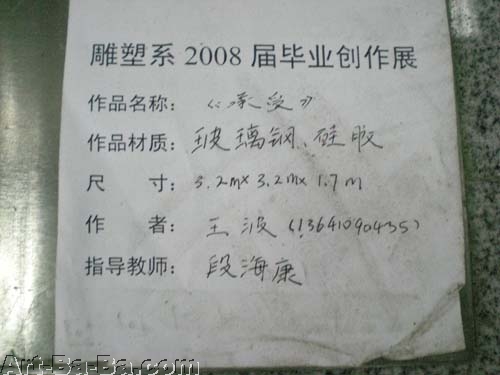 雕塑系 2008 届毕业创作展
作品名称：《承受》
作品材质：玻璃钢、硅胶
尺 寸：3.2m×3.2m×1.7m
作 者：王波（13641090435）
指导教师：段海康
Art-Ba-Ba.com